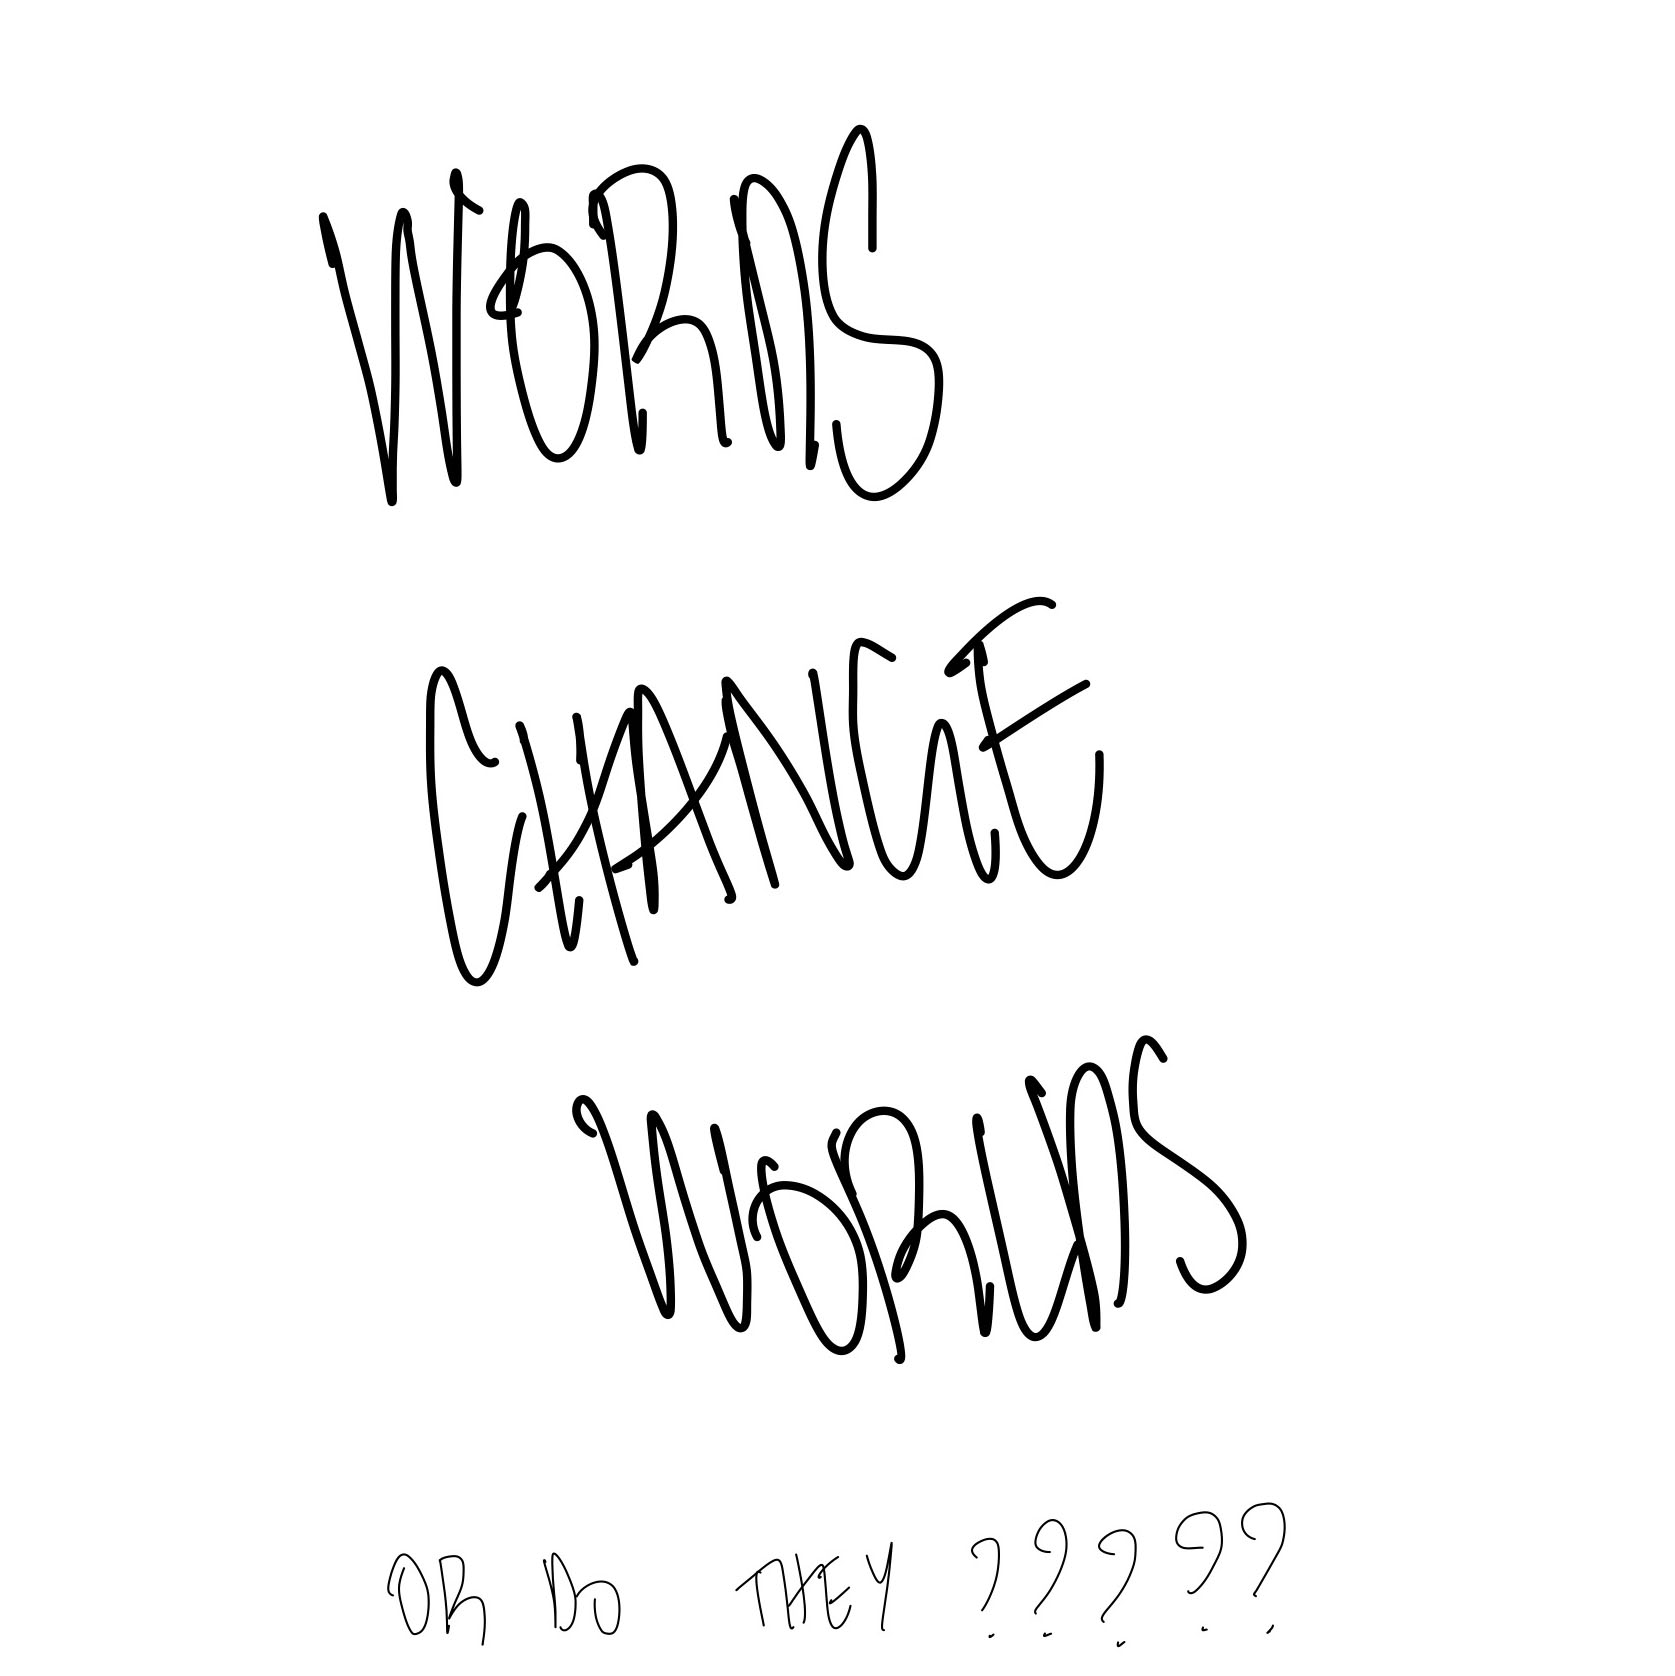 WORDS
CHANGE
WORLDS
OR DO THEY ?????